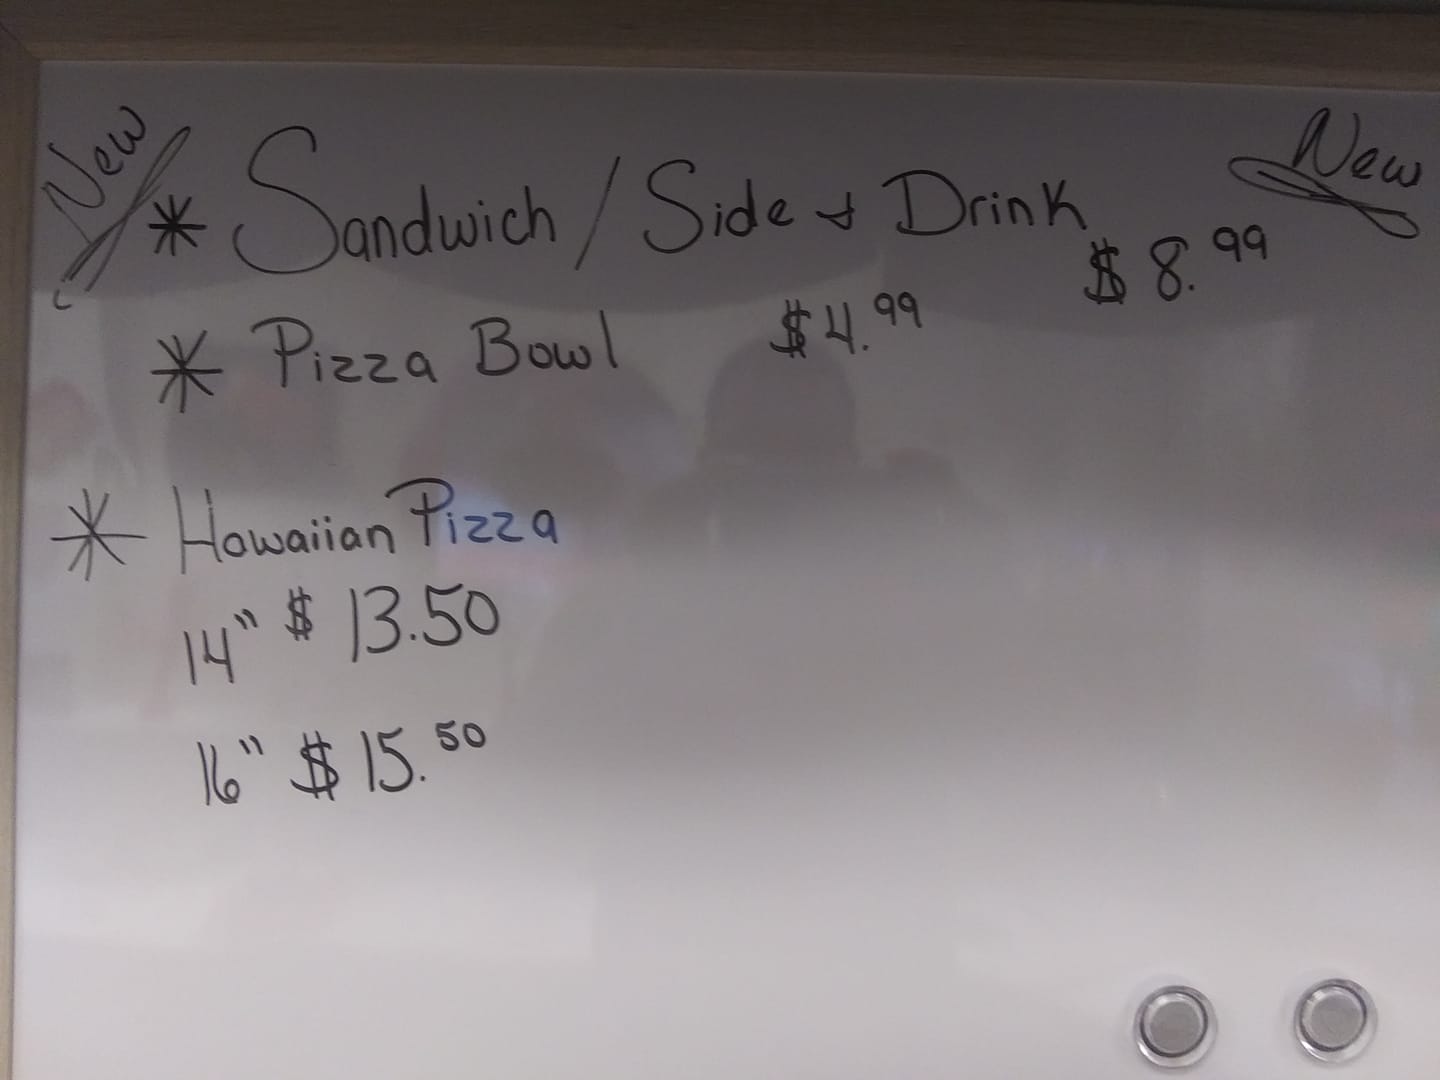 New
New
* Sandwich / Side & Drink $8.99
* Pizza Bowl $4.99
* Hawaiian Pizza
14" $13.50
16" $15.50